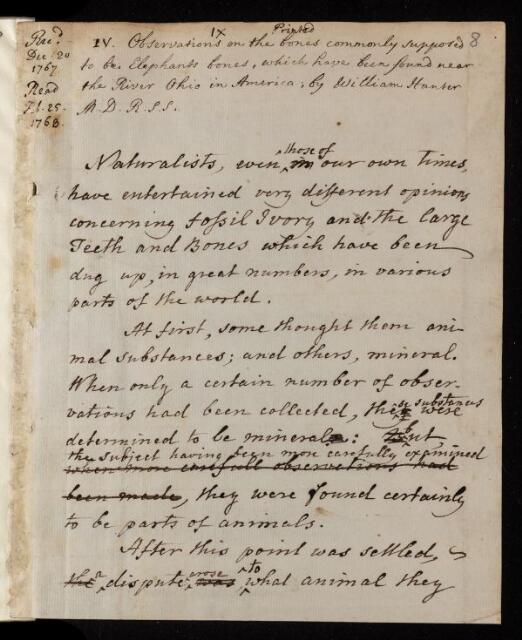 IX Printed
8
Rec.d
Dec. 20
1767
Read
F.b. 25.
1768.
IV. Observations on the bones commonly supposed
to be Elephants bones, which have been found near
the River Ohio in America; by William Hunter
M.D. R.S.S.
those of
Naturalists, even in our own times,
have entertained very different opinions
concerning fossil Ivory and the large
Teeth and Bones which have been
dug up, in great numbers, in various
parts of the world.
At first, some thought them ani-
mal substances; and others, mineral.
When only a certain number of obser-
vations had been collected, these substances were
determined to be mineral: But,
the subject having been more carefully examined
when more carefull observations had
been made, they were found certainly
to be parts of animals.
After this point was settled,
arose to
the a dispute was what animal they